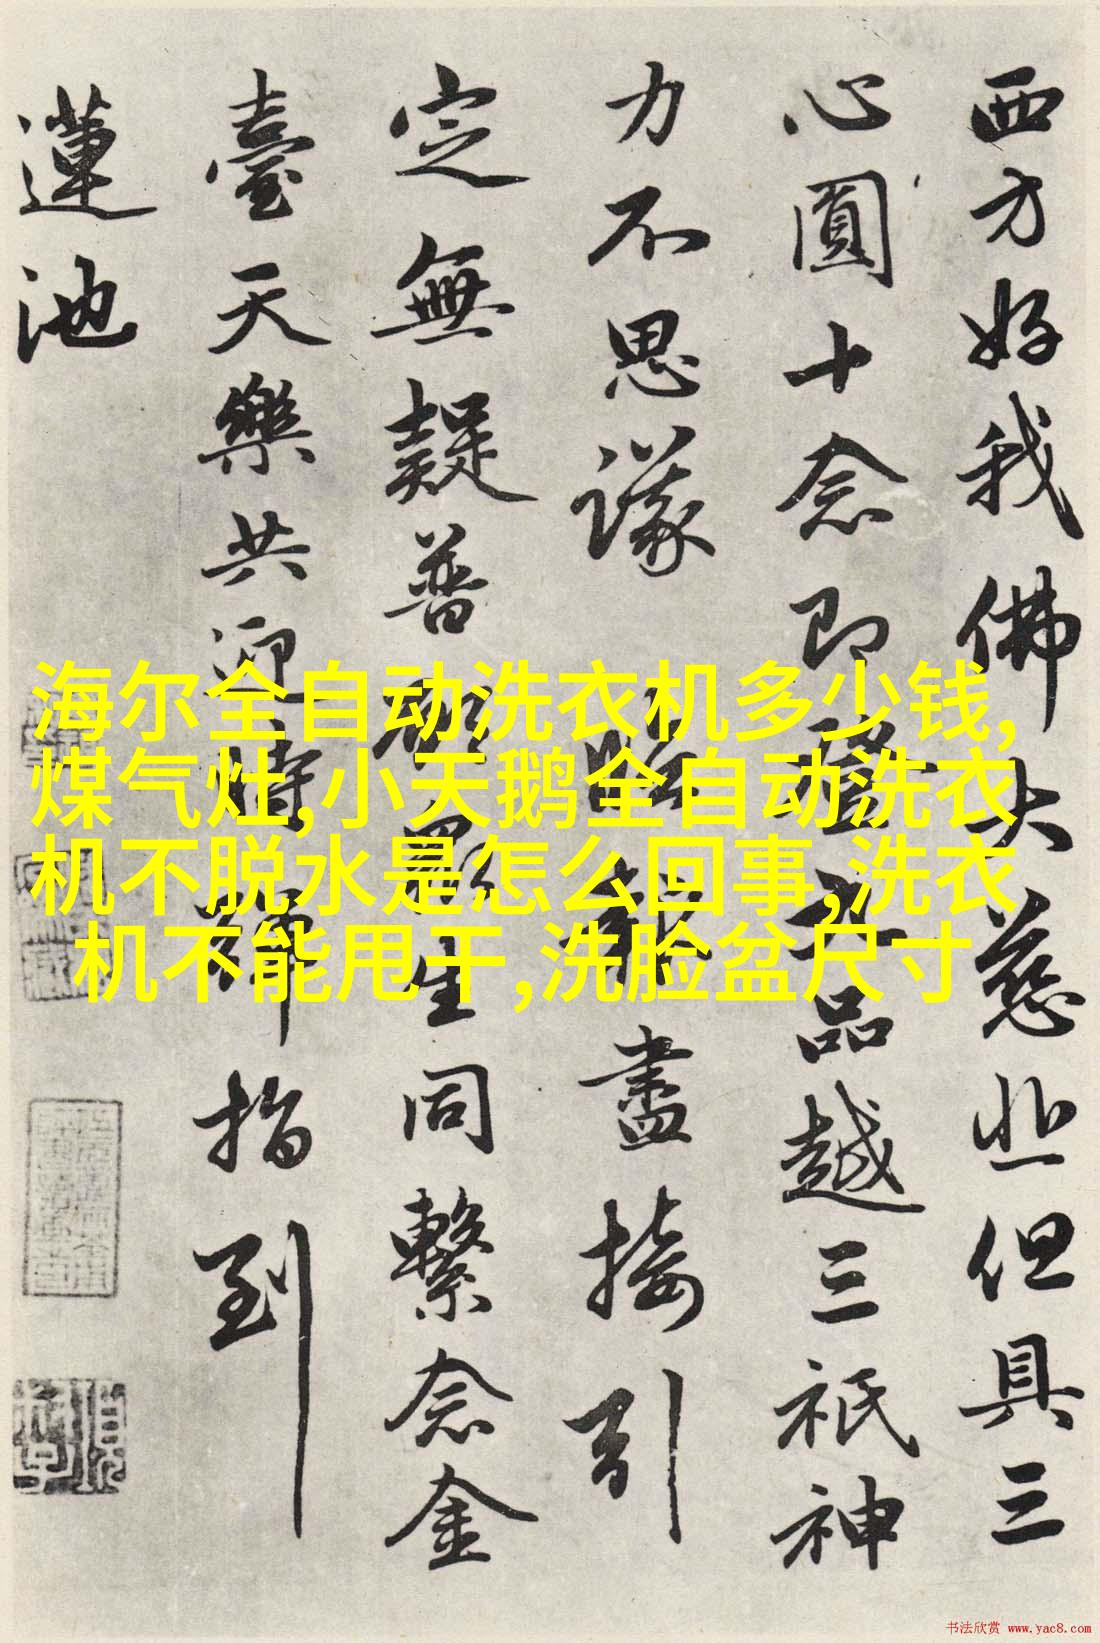 西方好我佛大慈悲但具三
心圓十念即登九品越三祇神
力不思議臨報盡接引
定無疑普願眾生同繫念金
臺天樂共迎時彈指到
蓮池
海尔全自动洗衣机多少钱,
煤气灶,小天鹅全自动洗衣
机不脱水是怎么回事,洗衣
机不能甩干,洗脸盆尺寸
书法欣赏 www.yac8.com